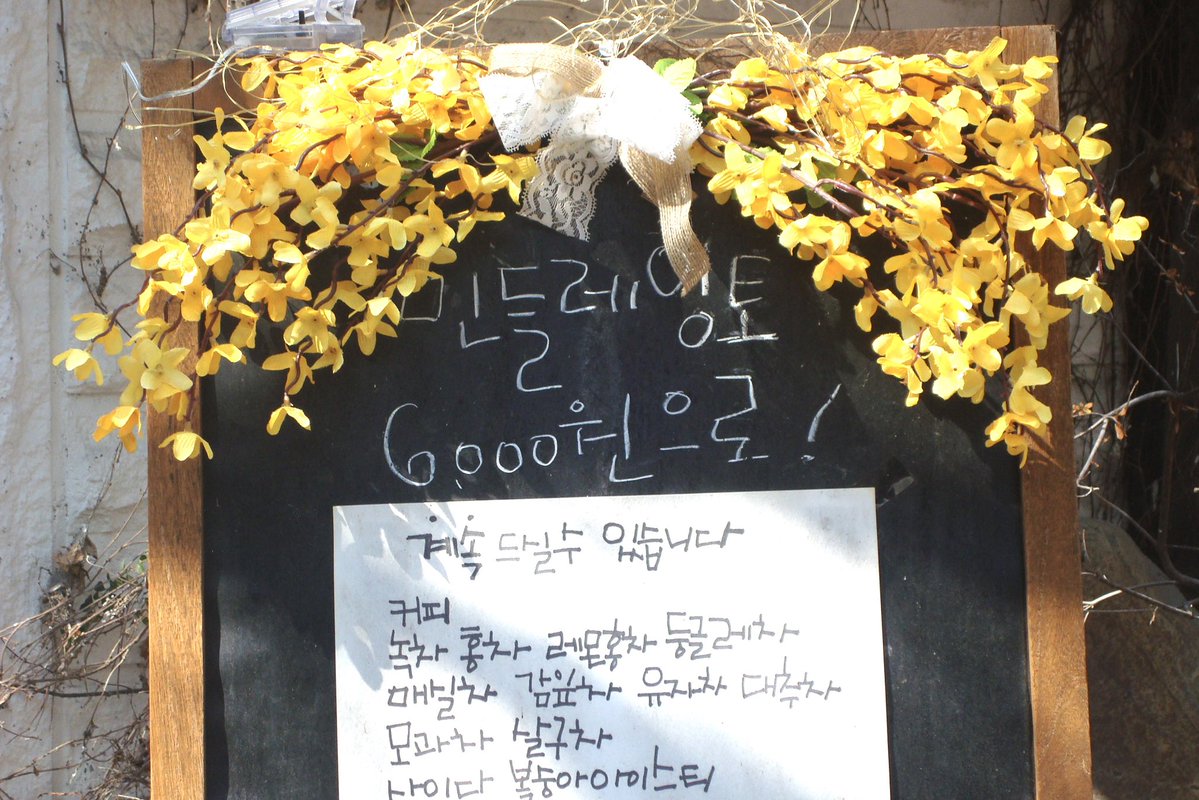 민들레영토
6,000원으로!
계속 드실수 있습니다
커피
녹차 홍차 레몬홍차 둥글레차
매실차 감잎차 유자차 대추차
모과차 살구차
사이다 복숭아아이스티